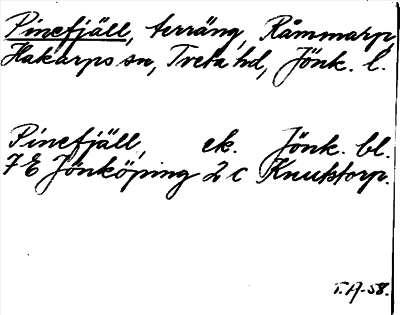 Pinefjäll, terräng, Råmmarp,
Hakarps sn, Tveta hd, Jönk. l.
Pinefjäll, ek. Jönk. bl.
7E Jönköping 2c Knutstorp.
T.A-58.